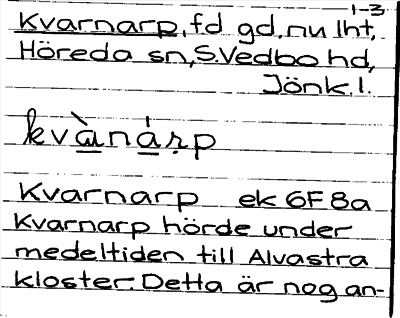 1-3
Kvarnarp, fd gd, nu lht,
Höreda sn, S. Vedbo hd,
Jönk. l.
kvànárp
Kvarnarp ek 6F 8a
Kvarnarp hörde under
medeltiden till Alvastra
kloster. Detta är nog an-